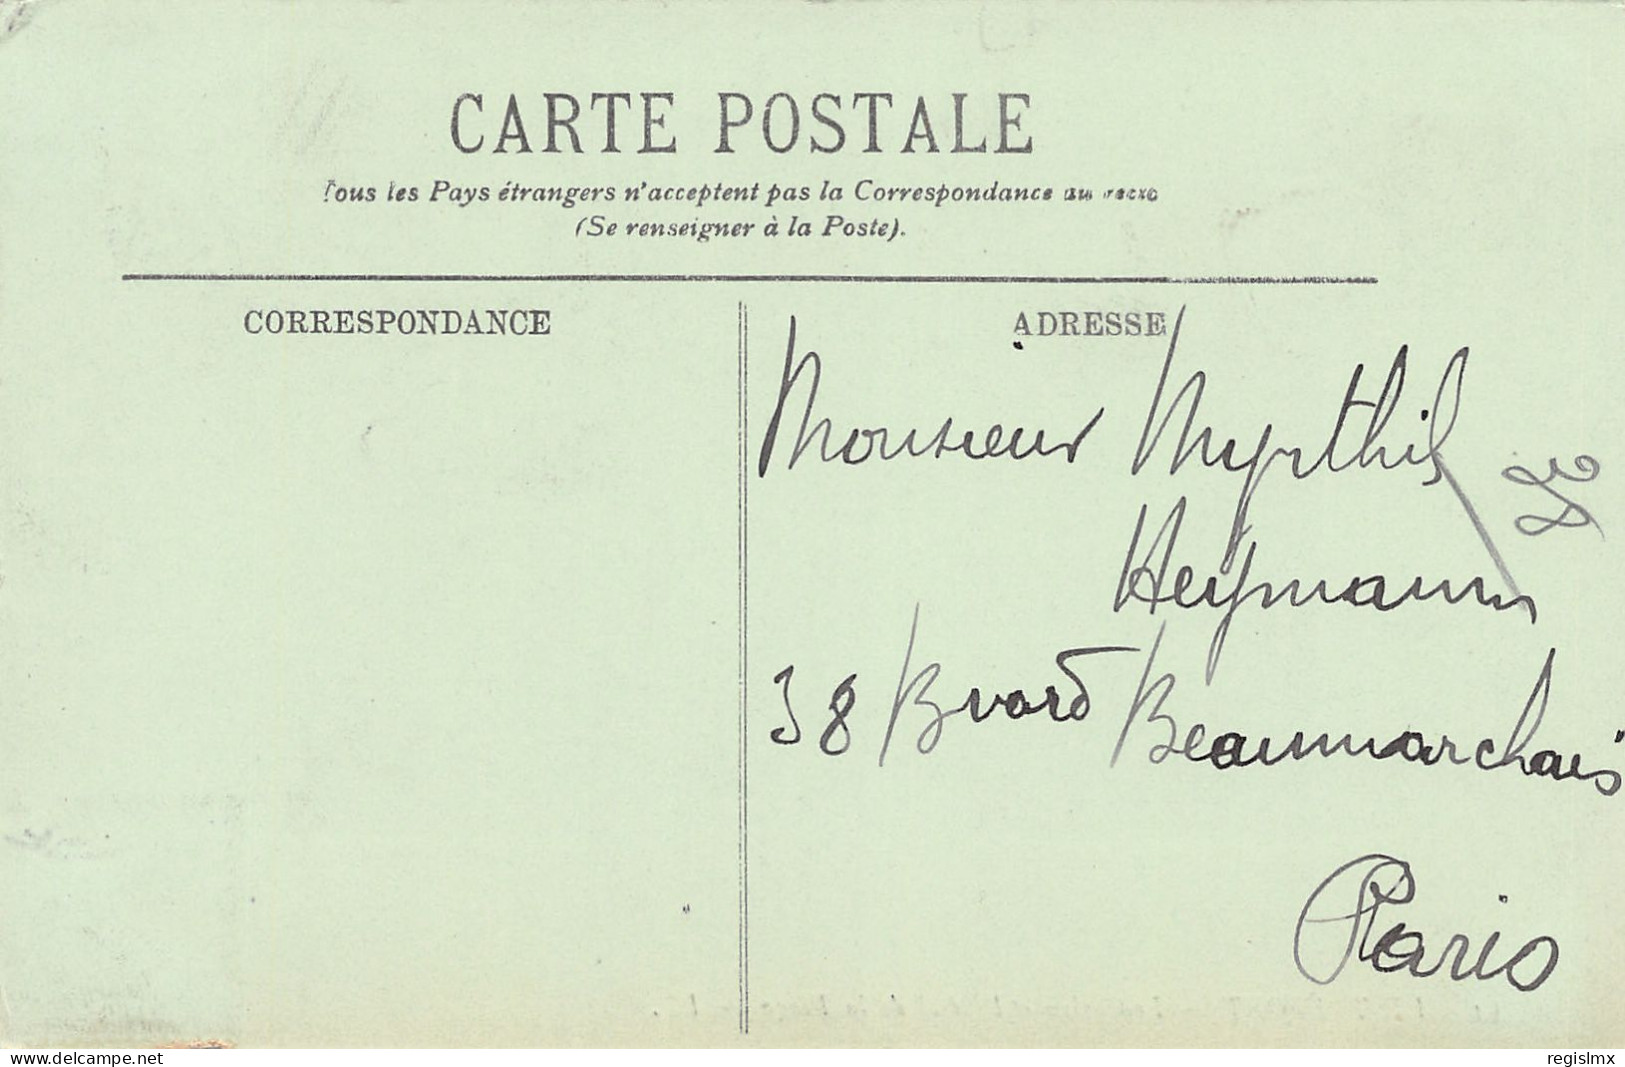 CARTE POSTALE
Tous les Pays étrangers n'acceptent pas la Correspondance au recto
(Se renseigner à la Poste).
CORRESPONDANCE
ADRESSE
Monsieur Myrthil
Heymann
38 Bvard Beaumarchais
Paris
www.delcampe.net
regislmx